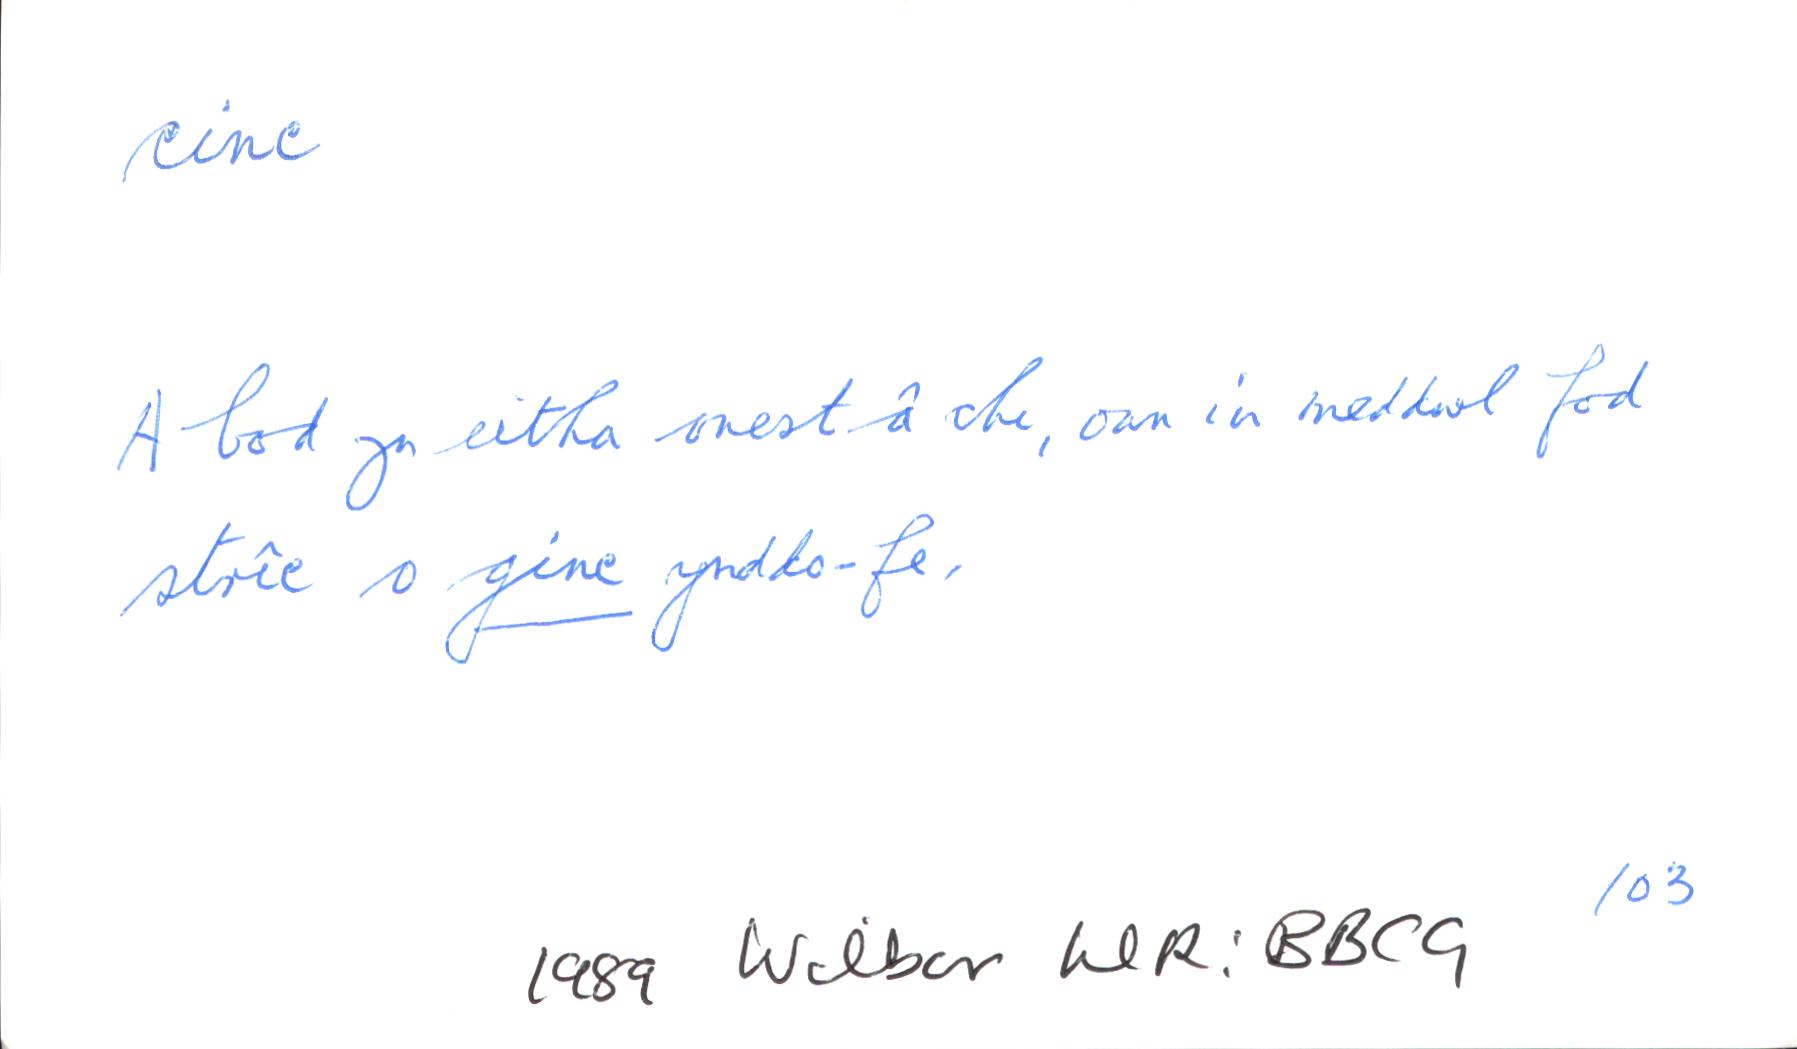 cinc
A bod yn eitha onest â chi, own i'n meddwl fod
strîc o ginc ynddo-fe.
103
1989 Wilbor WR: BBCG